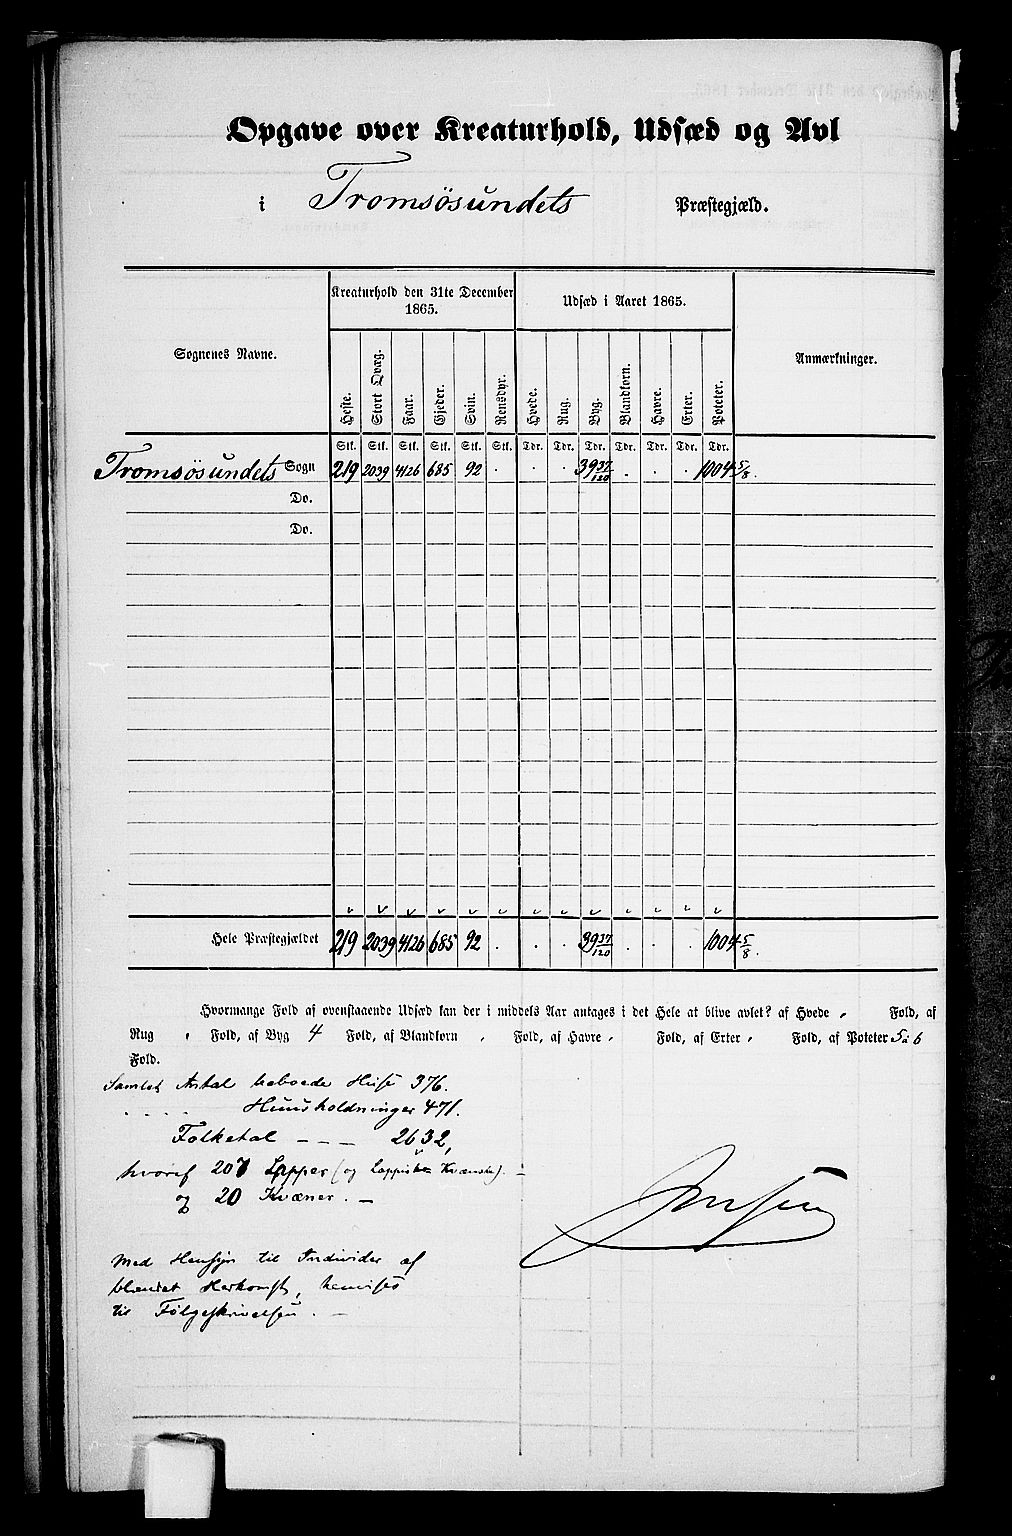 Opgave over Kreaturhold, Udsæd og Avl
i Tromsösundets Præstegjæld.
Sognenes Navne.
Kreaturhold den 31te December 1865.
Udsæd i Aaret 1865.
Anmærkninger.
Heste. Stort Qvæg. Faar. Gjeder. Svin. Rensdyr. Hvede. Rug. Byg. Blandkorn. Havre. Erter. Poteter.
Stk. Stk. Stk. Stk. Stk. Stk. Tdr. Tdr. Tdr. Tdr. Tdr. Tdr. Tdr.
Tromsösundets Sogn 219 2039 4126 685 92 . . . 39 37/120 . . . 1004 5/8.
Do.
Do.
Hele Præstegjældet 219 2039 4126 685 92 . . . 39 37/120 . . . 1004 5/8.
Hvormange Fold af ovenstaaende Udsæd kan der i middels Aar antages i det Hele at blive avlet? af Hvede , Fold, af
Rug , Fold, af Byg 4 Fold, af Blandkorn , Fold, af Havre , Fold, af Erter , Fold, af Poteter 5 à 6
Fold.
Samlet Antal beboede Huse 376.
. . . . Huusholdninger 471.
Folketal – – – 2632,
hvoraf 207 Lapper (og Lappisk Kvænske). –
og 20 Kvæner. –
Med Hensyn til Individer af
blandet Herkomst, henvises
til Følgeskrivelsen. –